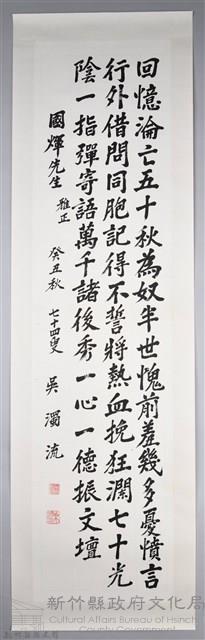 回憶淪亡五十秋為奴半世愧前羞幾多憂憤言
行外借問同胞記得不誓將熱血挽狂瀾七十光
陰一指彈寄語萬千諸後秀一心一德振文壇
國煇先生 雅正 癸丑秋 七十四叟 吳濁流
新竹縣政府文化局
Cultural Affairs Bureau of Hsinchu
County Government